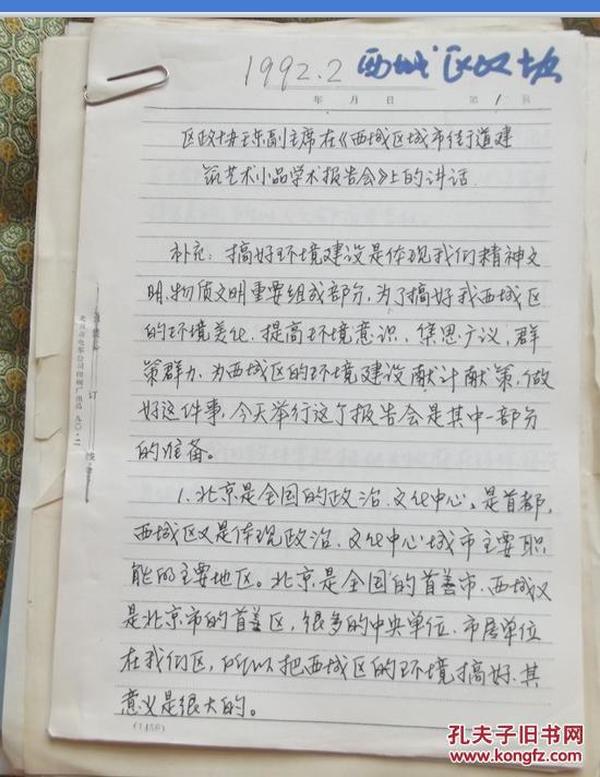 1992.2 西城区政协
年 月 日 第 1 页
区政协王东副主席在《西城区城市街道建
筑艺术小品学术报告会》上的讲话
补充：搞好环境建设是体现我们精神文
明、物质文明重要组成部分，为了搞好我西城区
的环境美化、提高环境意识、集思广议，群
策群力、为西城区的环境建设献计献策，做
好这件事，今天举行这个报告会是其中一部分
的准备。
1、北京是全国的政治、文化中心，是首都，
西城区又是体现政治、文化中心城市主要职
能的主要地区。北京是全国的首善市、西城又
是北京市的首善区，很多的中央单位、市属单位
在我们区，所以把西城区的环境搞好、其
意义是很大的。
订
孔夫子旧书网
KONGFZ.COM